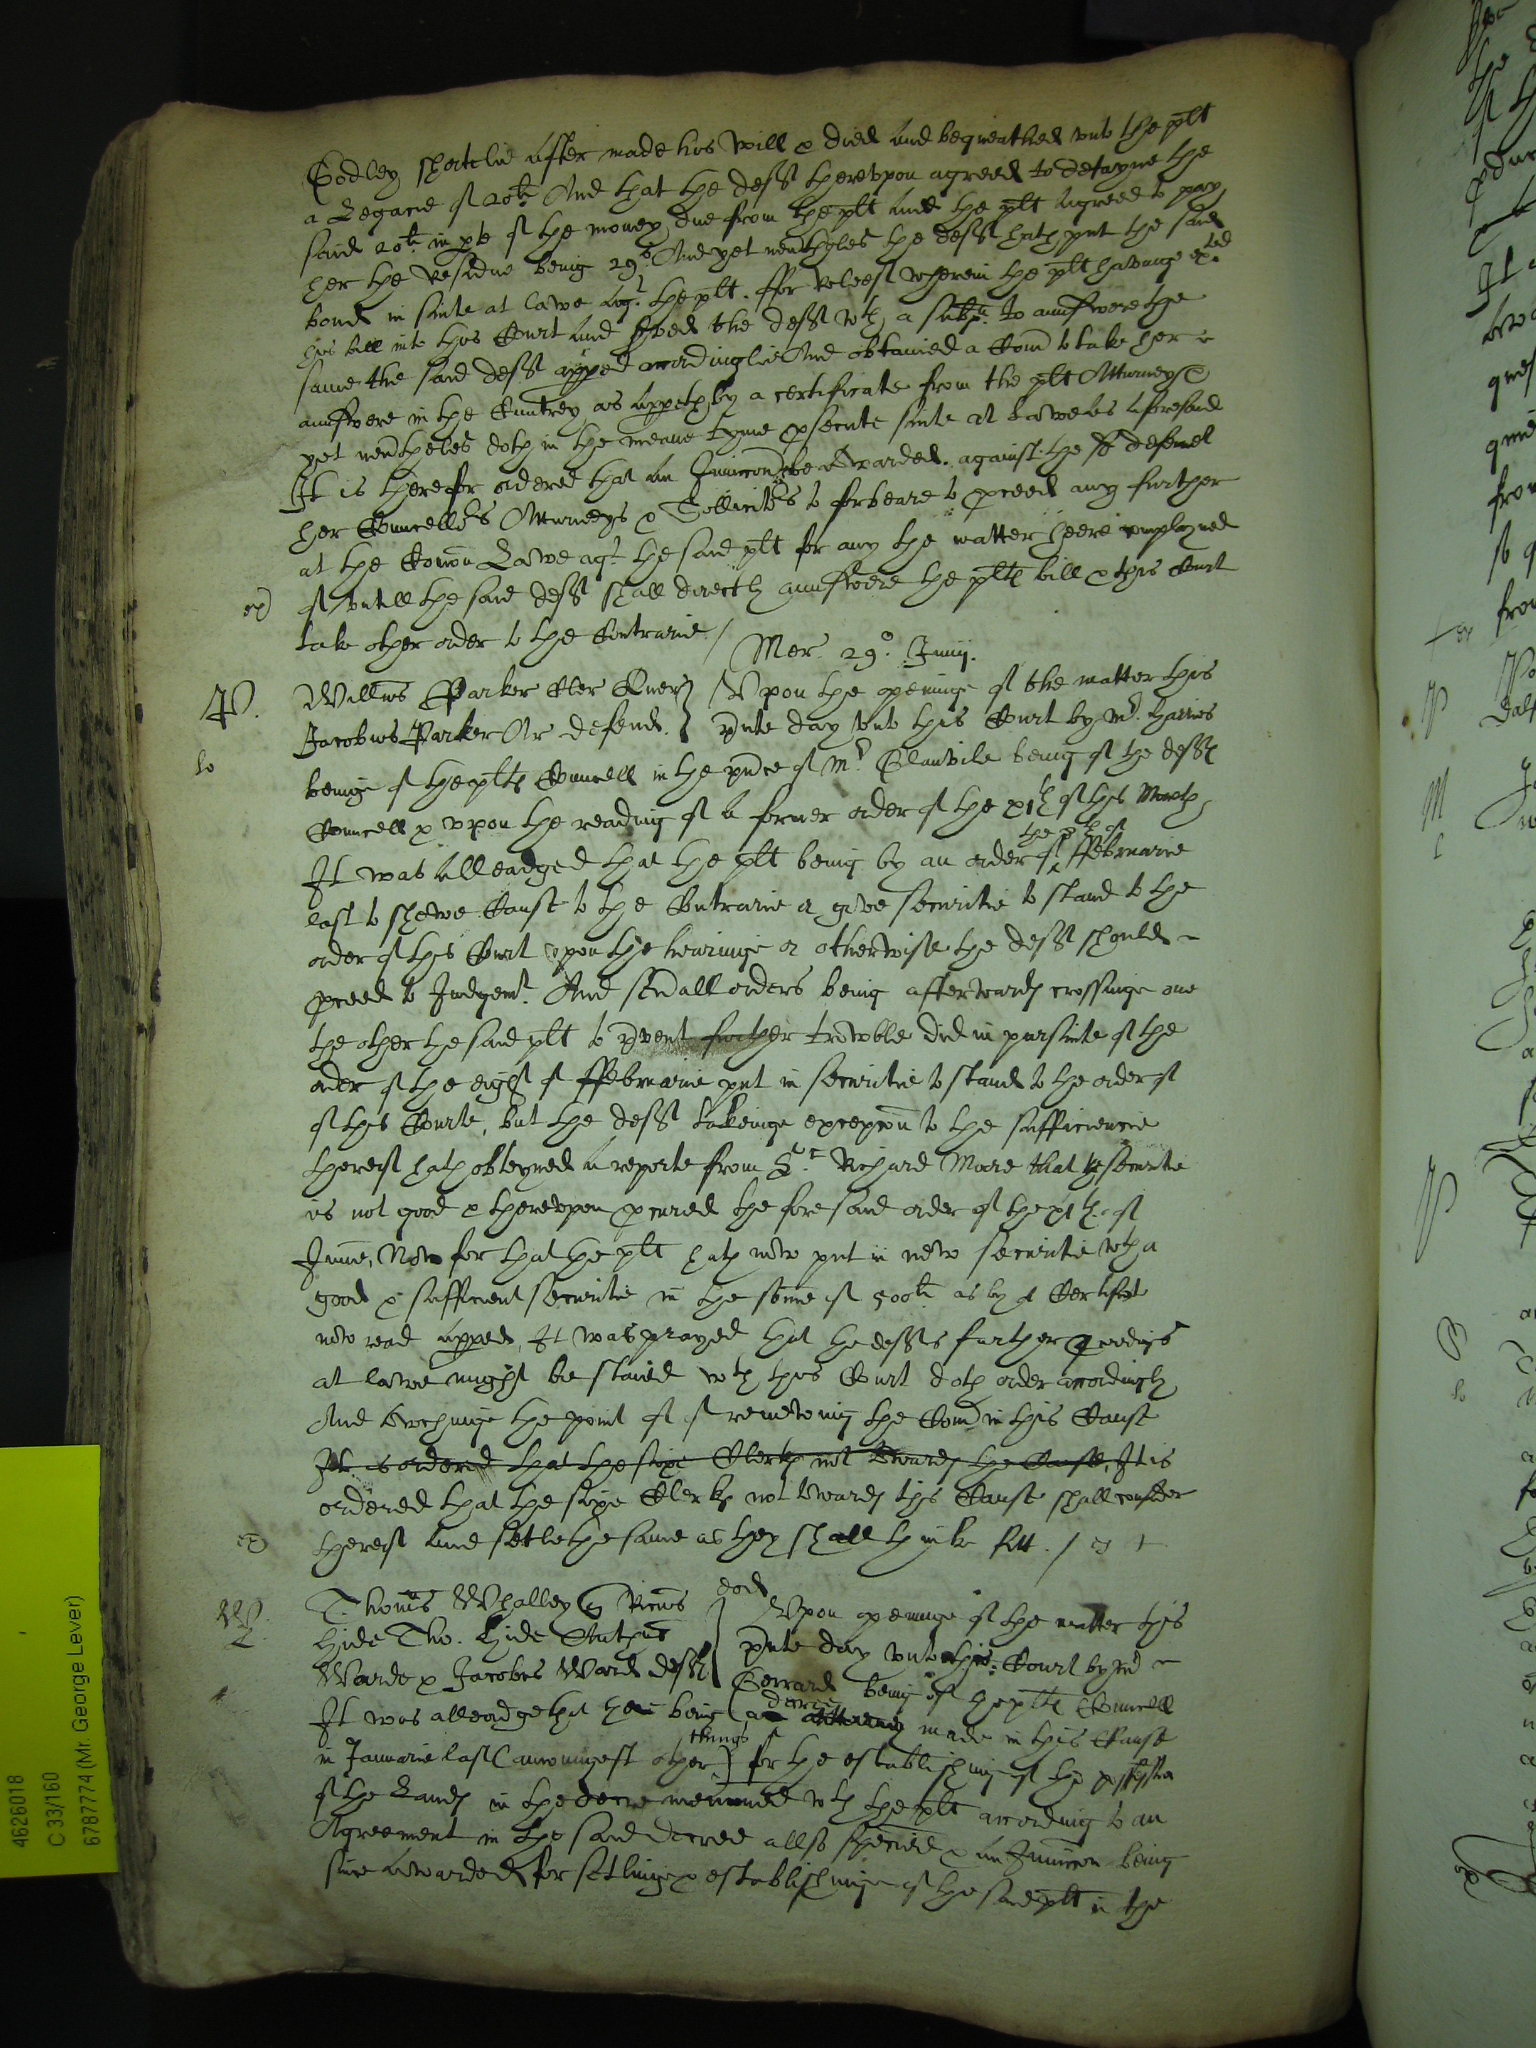 Godley shortelie after made his will & died and bequeathed unto the plt
a Legacie of 20li And that the deft therevpon agreed to detayne the
said 20li in pte of the money due from the plt and the plt agreed to pay
her the residue being 29li And yet nevthyles the deft hath put the said
bond in suite at lawe agt the plt. ffor releef wherein the plt havinge exted
his bill into this Court and served the deft wth a subpa to aunswere the
same the said deft apped accordinglie And obtained a Comn to take her
aunswere in the Cuntrey as appeth by a certificate from the plt Atturney &
yet nevtheles doth in the meane tyme psecute suite at Lawe as aforesaid
It is therefor ordered that an Iniuncon be awarded against the sd defend
her Councellors Atturneys & Sollicitors to forbeare to pceed any further
at the Comon Lawe agt the said plt for any the matter heere complayned
of vntill the said deft shall directly aunswere the plts bill & this Court
take other order to the Contrarie /
ex
Mer 29o Junij.
P.
lo
Willms Parker Cler Quer } Vpon the openinge of the matter this
Jacobus Parker Ar defend. } pnte day vnto this Court by mr Harries
beinge of the plts Councell in the pnce of Mr Glanvile being of the defts
Councell & vpon the reading of a former order of the xith of this Month
It was alleadged that the plt being by an order of the 8th of ffebruarie
last to shewe Cause to the Contrarie or give securitie to stand to the
order of this Court vpon the hearinge or otherwise the deft should
pceed to Judgemt. And sevall orders being afterwards crossinge one
the other the said plt to pvent further trowble did in pursuite of the
order of the eight of ffebruarie put in securitie to stand to the order of
of this Courte, but the deft takeinge excepcon to the sufficiencie
thereof hath obteyned a reporte from Sr Richard Moore that the securitie
is not good & therevpon pcured the foresaid order of the xith of
June, Now for that the plt hath now put in new securitie wth a
good & sufficient securitie in the some of 500li as by a Certificat
now read apped, It was prayed that the defts further pceedings
at lawe might be staied wch this Court doth order accordingly
And towching the point of of renewing the Comn in this Cause
It is ordered that the sixe Clerks not towards the Cause, It is
ordered that the sixe Clerks not towards this Cause shall consider
thereof and setle the same as they shall thinke fitt. /
ex
W.
L.
eod
Thomas Whalley Ricus
Hide Tho. Hide Arthur
Warde & Jacobus Ward defts
Vpon openinge of the matter this
pnte day vnto this Court by mr
Gerrard being of the plts Councell
It was alleadged that there being a decree made in this Cause
in Januarie last (amoungest other things) for the establishing of the possession
of the Lands in the decree mencioned wth the plt according to an
Agreement in the said decree allso specified & an Iniuncon being
since awarded for setlinge & establishinge of the said plt in the
4626018
C 33/160
6787774 (Mr. George Lever)